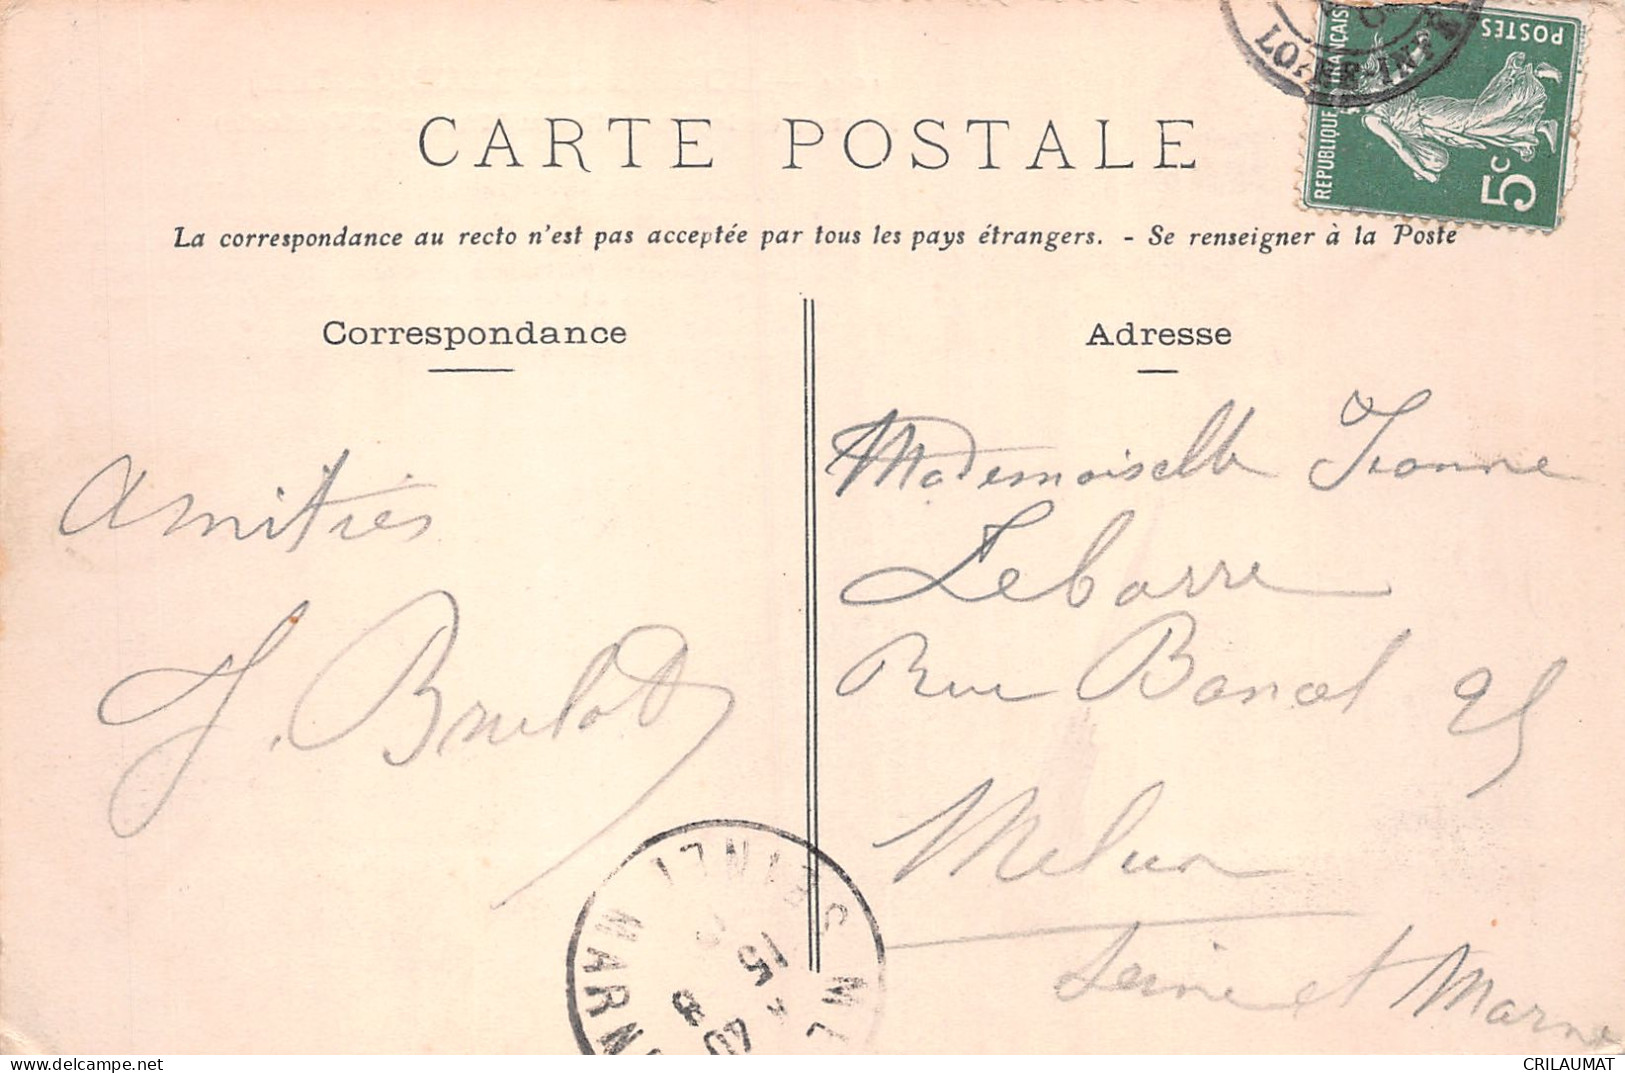 LOIRE-INFRE
REPUBLIQUE FRANÇAISE
POSTES
5c
CARTE POSTALE
La correspondance au recto n'est pas acceptée par tous les pays étrangers. - Se renseigner à la Poste
Correspondance
Amitiés
J. Brulot
Adresse
Mademoiselle
Lebarre
Rue Bancel 25
Melun
Seine et Marne
15
8
MARN
CRILAUMAT